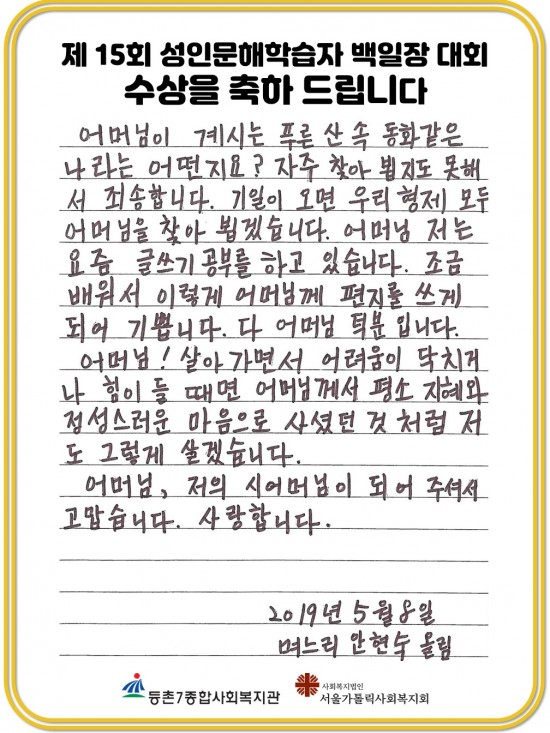 제 15회 성인문해학습자 백일장 대회
수상을 축하 드립니다
어머님이 계시는 푸른 산 속 동화같은
나라는 어떤지요? 자주 찾아 뵙지도 못해
서 죄송합니다. 기일이 오면 우리 형제 모두
어머님을 찾아 뵙겠습니다. 어머님 저는
요즘 글쓰기 공부를 하고 있습니다. 조금
배워서 이렇게 어머님께 편지를 쓰게
되어 기쁩니다. 다 어머님 덕분 입니다.
어머님! 살아가면서 어려움이 닥치거
나 힘이 들 때면 어머님께서 평소 지혜와
정성스러운 마음으로 사셨던 것 처럼 저
도 그렇게 살겠습니다.
어머님, 저의 시어머님이 되어 주셔서
고맙습니다. 사랑합니다.
2019년 5월 8일
며느리 안현수 올림
등촌7종합사회복지관
사회복지법인
서울가톨릭사회복지회